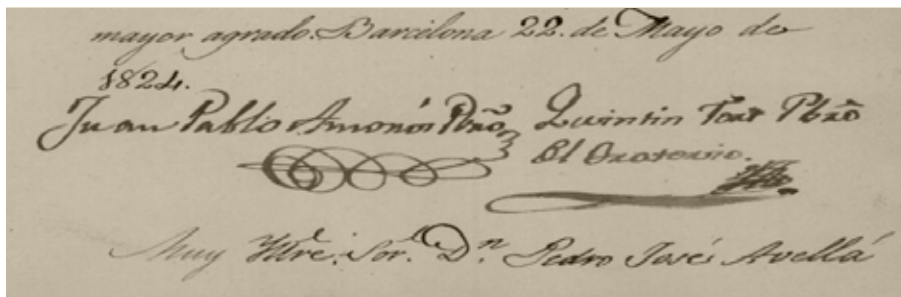 mayor agrado. Barcelona 22. de Mayo de
1824.
Juan Pablo Amorós Pbro. Quintin Fort Pbro
Del Oratorio.
Muy Iltre. Sor. Dn. Pedro José Avellá